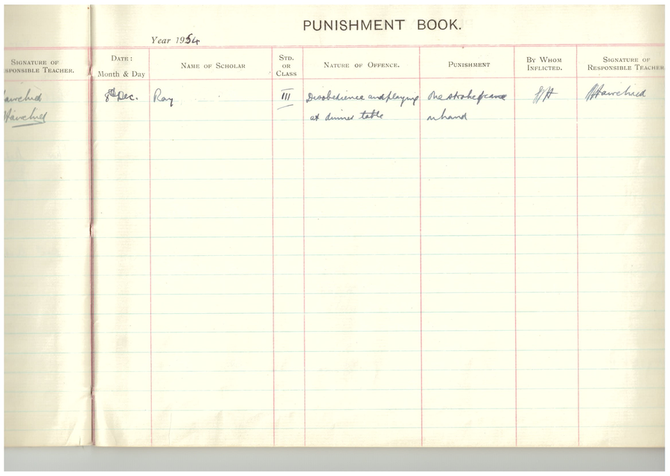 PUNISHMENT BOOK.
Year 1954
SIGNATURE OF
RESPONSIBLE TEACHER.
DATE:
Month & Day
NAME OF SCHOLAR
STD.
OR
CLASS
NATURE OF OFFENCE.
PUNISHMENT
BY WHOM
INFLICTED.
SIGNATURE OF
RESPONSIBLE TEACHER.
8th Dec.
Roy
III
Disobedience and playing
at dinner table
One stroke of cane
on hand